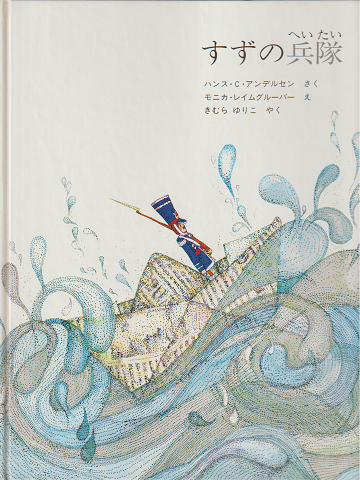 へいたい
すずの兵隊
ハンス・C・アンデルセン さく
モニカ・レイムグルーバー え
きむら ゆりこ やく